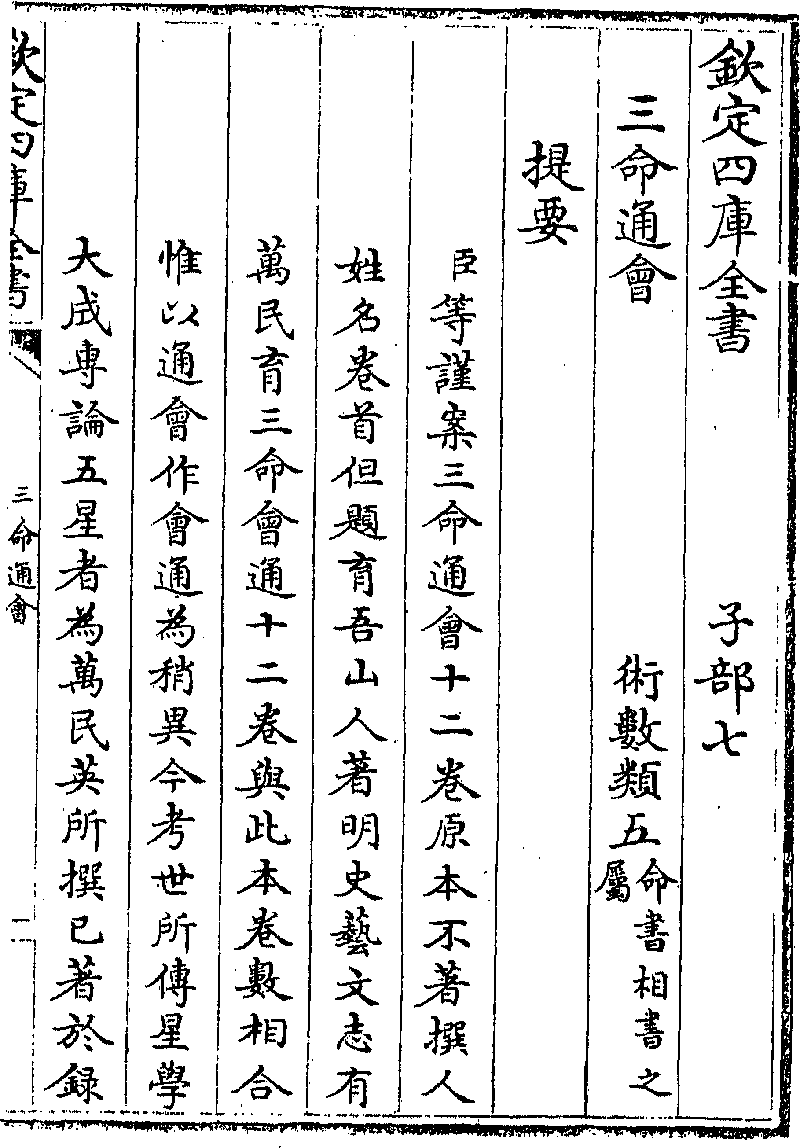 欽定四庫全書　子部七
三命通會　術數類五命書相書之屬
提要
臣等謹案三命通會十二卷原本不著撰人
姓名卷首但題育吾山人著明史藝文志有
萬民育三命會通十二卷與此本卷數相合
惟以通會作會通為稍異今考世所傳星學
大成專論五星者為萬民英所撰已著於録
欽定四庫全書　三命通會